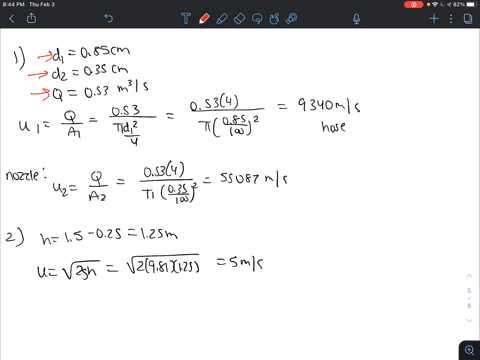 8:44 PM Thu Feb 3
82%
1) → d₁ = 0.85cm
→ d₂ = 0.35 cm
→ Q = 0.53 m³/s
u₁ = Q/A₁ = 0.53/(πd₁²/4) = 0.53(4)/(π(0.85/100)²) = 9340 m/s
hose
nozzle: u₂ = Q/A₂ = 0.53(4)/(π(0.35/100)²) = 55087 m/s
2) h = 1.5 - 0.25 = 1.25m
u = √2gh = √2(9.81)(1.25) = 5 m/s